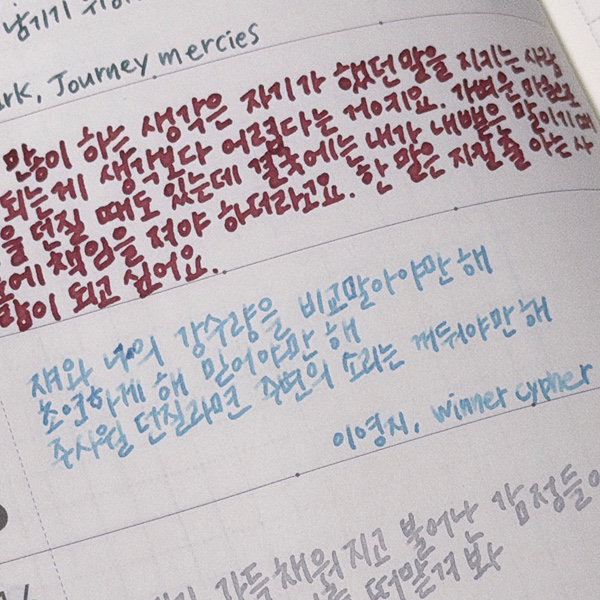 남기기
ark, Journey mercies
많이 하는 생각은 자기가 했던 말을 지키는 사람
되는게 생각보다 어렵다는 거예요. 가벼운 마음으로
을 던질 때도 있는데 결국에는 내가 내뱉은 말이기 때
에 책임을 져야 하더라고요. 한 말은 지킬 줄 아는 사
람이 되고 싶어요.
쟤와 나의 강수량을 비교말아야만 해
초연하게 해 믿어야만 해
주사윌 던질라면 주변의 소리는 꺼둬야만 해
이영지, winner cypher
가득 채워지고 불어난 감정들이
떠맡겨 봐